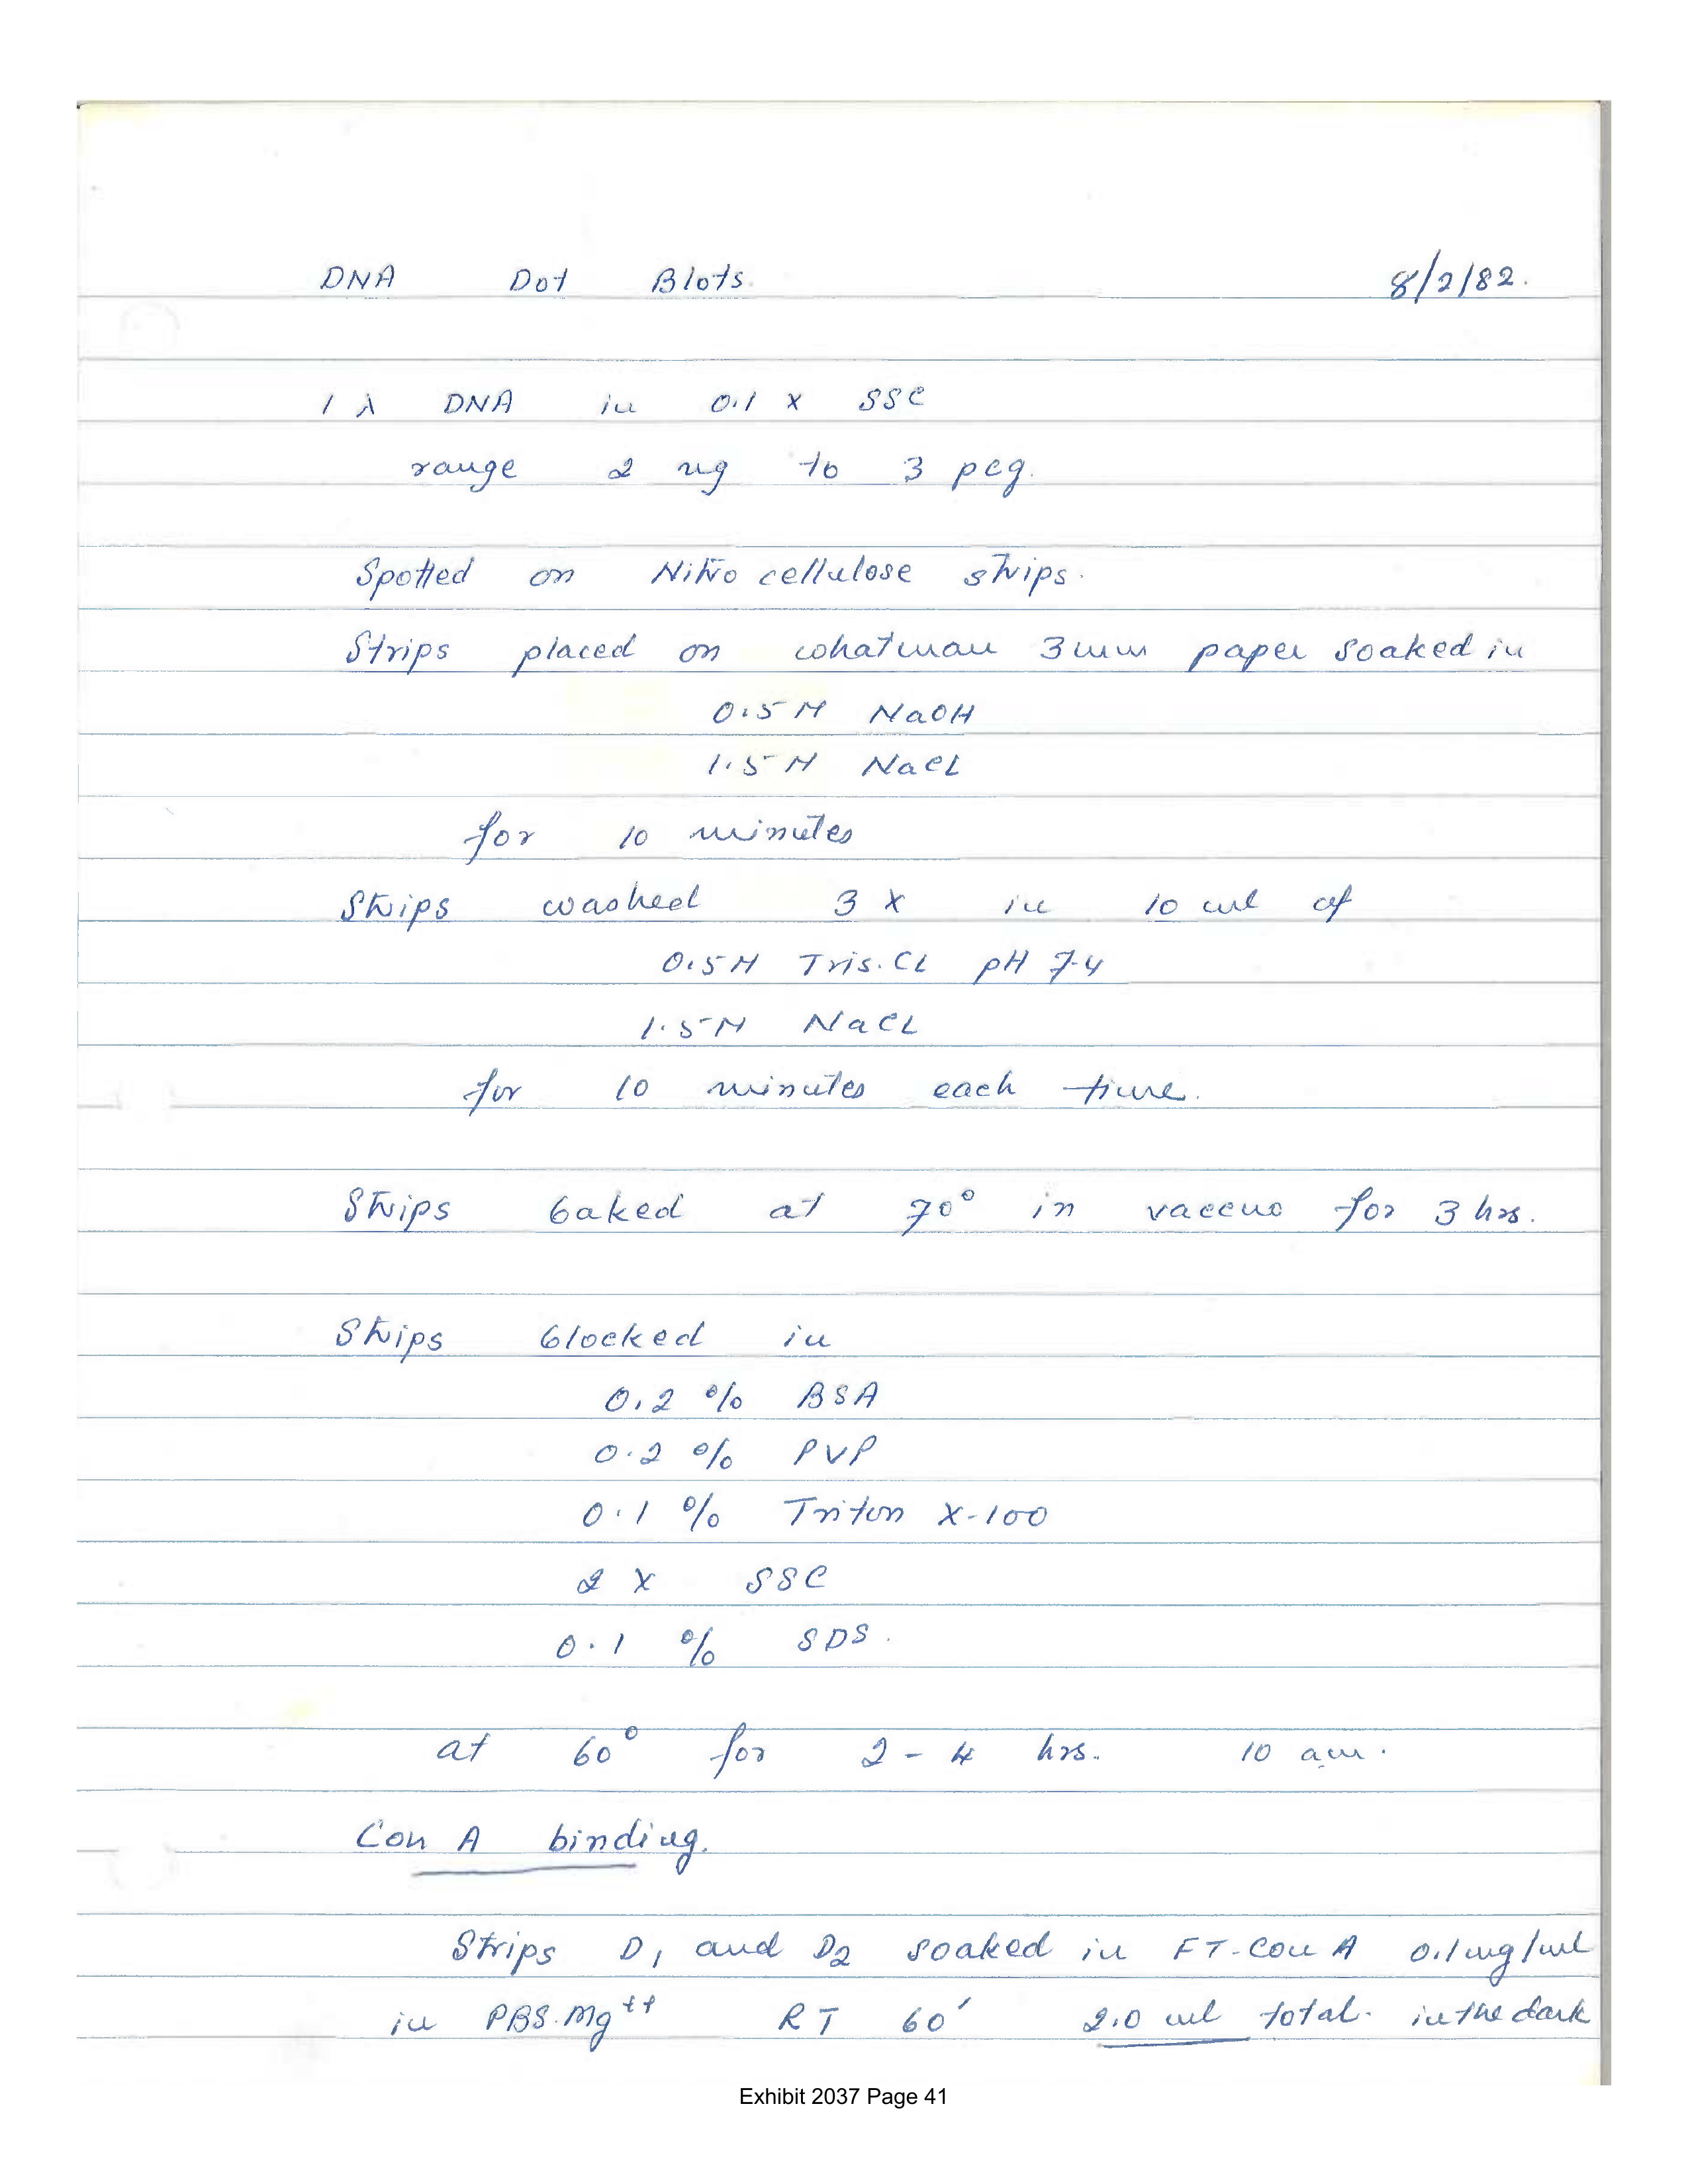 DNA Dot Blots. 8/2/82.
1 λ DNA in 0.1 x SSC
range 2 ng to 3 pcg.
Spotted on Nitrocellulose strips.
Strips placed on whatman 3mm paper soaked in
0.5M NaOH
1.5M NaCl
for 10 minutes
Strips washed 3 x in 10 ml of
0.5M Tris.Cl pH 7.4
1.5M NaCl
for 10 minutes each time.
Strips baked at 70° in vaccuo for 3 hrs.
Strips blocked in
0.2 % BSA
0.2 % PVP
0.1 % Triton X-100
2 x SSC
0.1 % SDS.
at 60° for 2-4 hrs. 10 am.
Con A binding.
Strips D1 and D2 soaked in FT-Con A 0.1mg/ml
in PBS.Mg++ RT 60' 2.0 ml total. in the dark
Exhibit 2037 Page 41